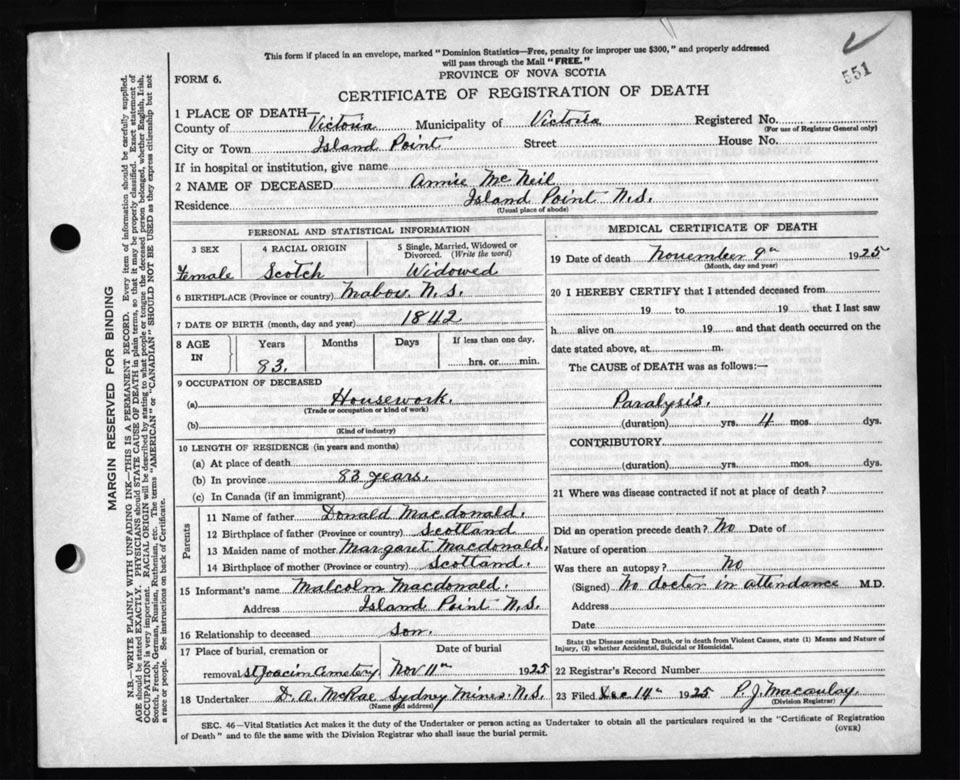 This form if placed in an envelope, marked "Dominion Statistics—Free, penalty for improper use $300," and properly addressed
will pass through the Mail "FREE."
551
FORM 6.
PROVINCE OF NOVA SCOTIA
CERTIFICATE OF REGISTRATION OF DEATH
1 PLACE OF DEATH—
County of Victoria Municipality of Victoria Registered No.
(For use of Registrar General only)
City or Town Island Point Street House No.
If in hospital or institution, give name
2 NAME OF DECEASED Annie McNeil
Residence Island Point N.S.
(Usual place of abode)
PERSONAL AND STATISTICAL INFORMATION
3 SEX 4 RACIAL ORIGIN 5 Single, Married, Widowed or Divorced. (Write the word)
Female Scotch Widowed
6 BIRTHPLACE (Province or country) Mabou N.S.
7 DATE OF BIRTH (month, day and year) 1842
8 AGE IN Years Months Days If less than one day,
83. hrs. or min.
9 OCCUPATION OF DECEASED
(a) Housework.
(Trade or occupation or kind of work)
(b)
(Kind of industry)
10 LENGTH OF RESIDENCE (in years and months)
(a) At place of death
(b) In province 83 years.
(c) In Canada (if an immigrant)
Parents
11 Name of father Donald Macdonald.
12 Birthplace of father (Province or country) Scotland
13 Maiden name of mother Margaret Macdonald.
14 Birthplace of mother (Province or country) Scotland.
15 Informant's name Malcolm Macdonald.
Address Island Point N.S.
16 Relationship to deceased Son.
17 Place of burial, cremation or Date of burial
removal St Joacim Cemetery Nov 11th 1925
18 Undertaker D. A. McRae Sydney Mines N.S.
(Name and address)
MEDICAL CERTIFICATE OF DEATH
19 Date of death November 9th 1925
(Month, day and year)
20 I HEREBY CERTIFY that I attended deceased from
19 to 19 that I last saw
h alive on 19 and that death occurred on the
date stated above, at m.
The CAUSE of DEATH was as follows:—
Paralysis.
(duration) yrs. 4 mos. dys.
CONTRIBUTORY
(duration) yrs. mos. dys.
21 Where was disease contracted if not at place of death?
Did an operation precede death? No Date of
Nature of operation
Was there an autopsy? No
(Signed) No docter in attendance M.D.
Address
Date
State the Disease causing Death, or in death from Violent Causes, state (1) Means and Nature of
Injury, (2) whether Accidental, Suicidal or Homicidal.
22 Registrar's Record Number
23 Filed Dec 14th 1925 P. J. Macaulay
(Division Registrar)
SEC. 46—Vital Statistics Act makes it the duty of the Undertaker or person acting as Undertaker to obtain all the particulars required in the "Certificate of Registration
of Death" and to file the same with the Division Registrar who shall issue the burial permit.
(OVER)
MARGIN RESERVED FOR BINDING
N.B.—WRITE PLAINLY WITH UNFADING INK—THIS IS A PERMANENT RECORD. Every item of information should be carefully supplied.
AGE should be stated EXACTLY. PHYSICIANS should STATE CAUSE OF DEATH in plain terms, so that it may be properly classified. Exact statement of
OCCUPATION is very important. RACIAL ORIGIN will be described by stating to what people or tongue the deceased person belonged, whether English, Irish,
Scotch, French, German, Russian, Ruthenian, etc. The terms "AMERICAN" or "CANADIAN" SHOULD NOT BE USED as they express citizenship but not
a race or people. See instructions on back of Certificate.